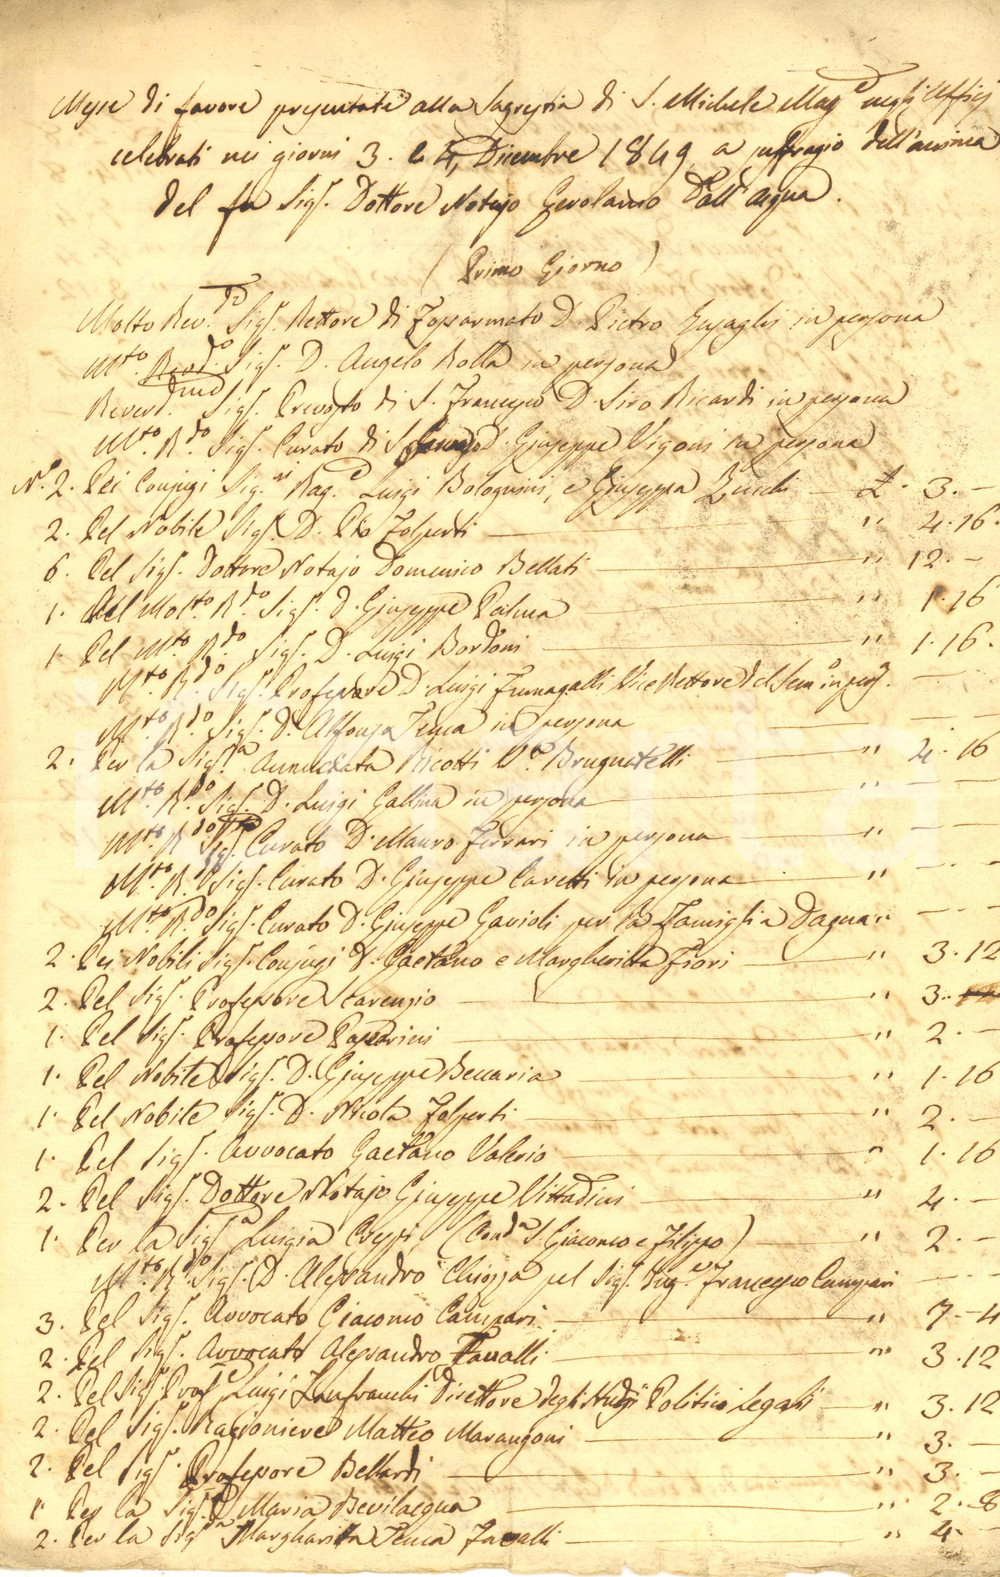 Messe di favore presentate alla Sagrestia di S. Michele Mag.e negli Ufficj
celebrati nei giorni 3. e 4, Dicembre 1849 a suffragio dell'anima
del fu Sig.r Dottore Notajo Gerolamo Dall'Acqua.
(Primo Giorno)
Molto Rev.do Sig.r Rettore di Fossarmato D. Pietro in persona
M.to Rev.do Sig.r D. Angelo Rolla in persona
Reverd.mo Sig.r Prevosto di S. Francesco D. Siro Ricardi in persona
M.to R.do Sig.r Curato di S. D. Giuseppe Vigoni in persona
N.o 2. Dei Conjugi Sig.ri Rag.e Luigi Bolognini, e Giuseppa Zucchi — £. 3. –
2. Del Nobile Sig.r D. Pio Folperti — " 4. 16.
6. Del Sig.r Dottore Notajo Domenico Bellati — " 12. –
1. Del Mol.to R.do Sig.r D. Giuseppe Palma — " 1. 16
1. Del M.to R.do Sig.r D. Luigi Bordoni — " 1. 16.
M.to R.do Sig.r Professore D. Luigi Fumagalli Vice Rettore del Sem.o in pers. — –
M.to R.do Sig.r D. Alfonso Tenca in persona — – –
2. Per la Sig.ra Annunciata Ricotti V.a Brugnatelli — " 4. 16
M.to R.do Sig.r D. Luigi Gallina in persona — " – –
M.to R.do Sig.r Curato D. Mauro Ferrari in persona — " – –
M.to R.do Sig.r Curato D. Giuseppe Cavetti in persona — " – –
M.to R.do Sig.r Curato D. Giuseppe Gavioli per la Famiglia Dagna " – –
2. Dei Nobili Sig.ri Conjugi D. Gaetano e Margheritta Fiori — " 3. 12
2. Del Sig.r Professore Scarenzio — " 3. –
1. Del Sig.r Professore Passerini — " 2. –
1. Del Nobile Sig.r D. Giuseppe Beccaria — " 1. 16
1. Del Nobile Sig.r D. Nicola Folperti — " 2. –
1. Del Sig.r Avvocato Gaetano Valerio — " 1. 16
2. Del Sig.r Dottore Notajo Giuseppe Vittadini — " 4. –
1. Per la Sig.ra Luigia Crespi, (Cond.a S. Giacomo e Filippo) — " 2. –
M.to R.do Sig.r D. Alessandro Chiozza pel Sig.r Ing.e Francesco Campari – –
3. Del Sig.r Avvocato Giacomo Campari — " 7. – 4
2. Del Sig.r Avvocato Alessandro Favalli — " 3. 12
2. Del Sig.r Prof.e Luigi Lanfranchi Direttore degli Studj Politico Legali — " 3. 12
2. Del Sig.r Ragioniere Matteo Marangoni — " 3. –
2. Del Sig.r Professore Bellardi — " 3. –
1. Per la Sig.ra Maria Bevilacqua — " 2. 8
2. Per la Sig.ra Margharitta Tenca Favalli — " 4. –